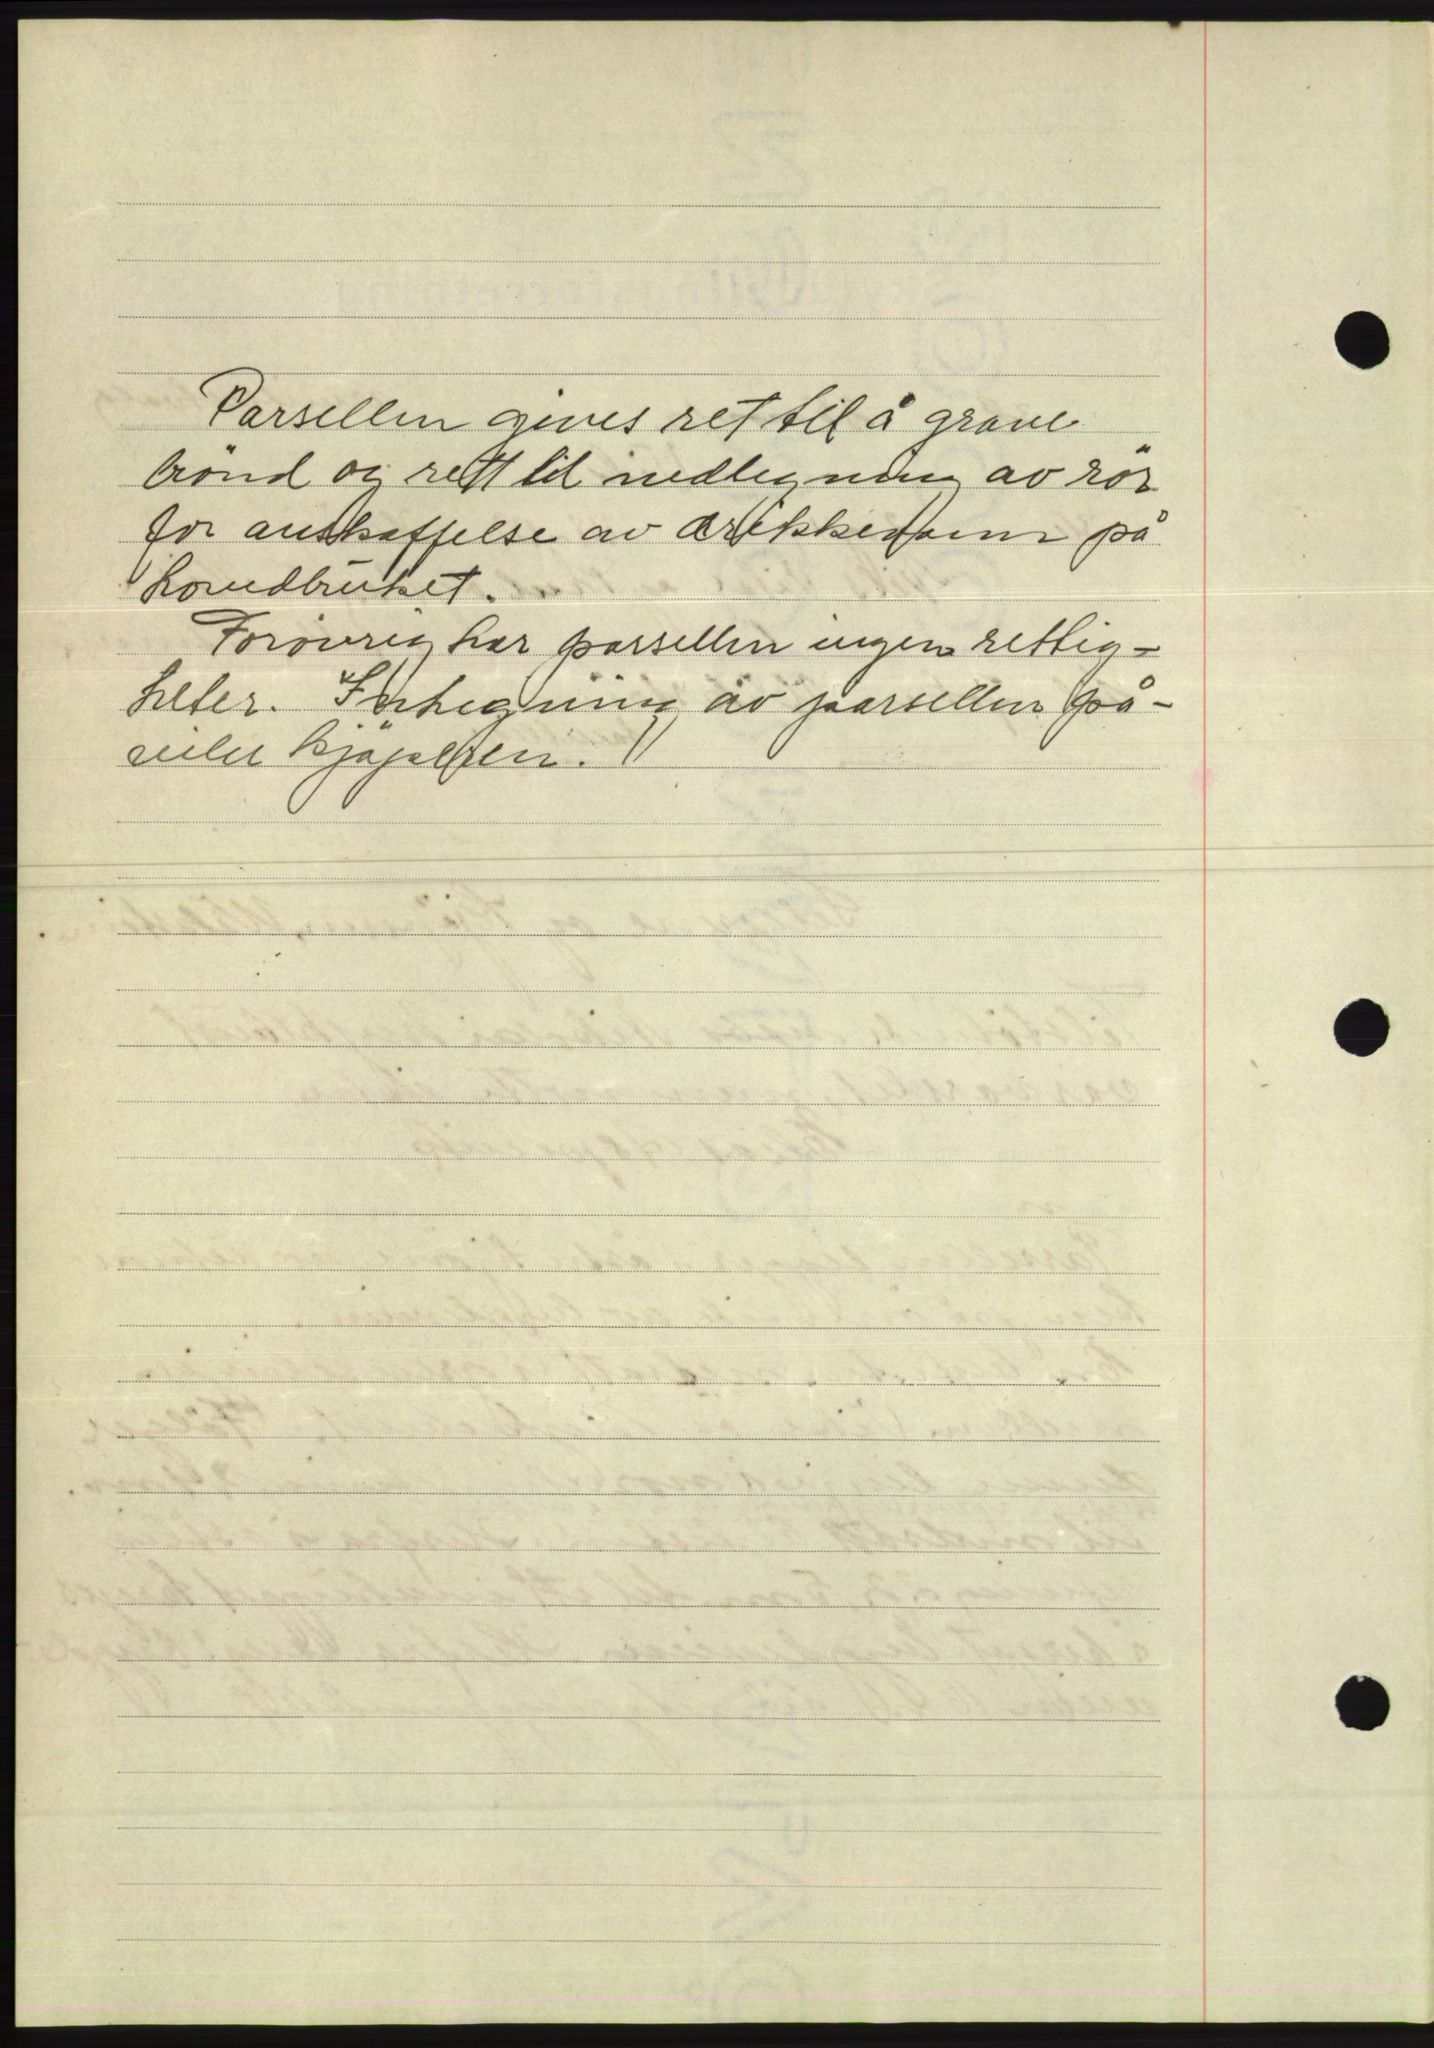 Parsellen gives ret til å grave
brönd og rett til nedlegning av rör
for anskaffelse av drikkevann på
hovedbruket.
Forövrig har parsellen ingen rettig-
heter. Inhegning av parsellen på-
viler kjöperen.